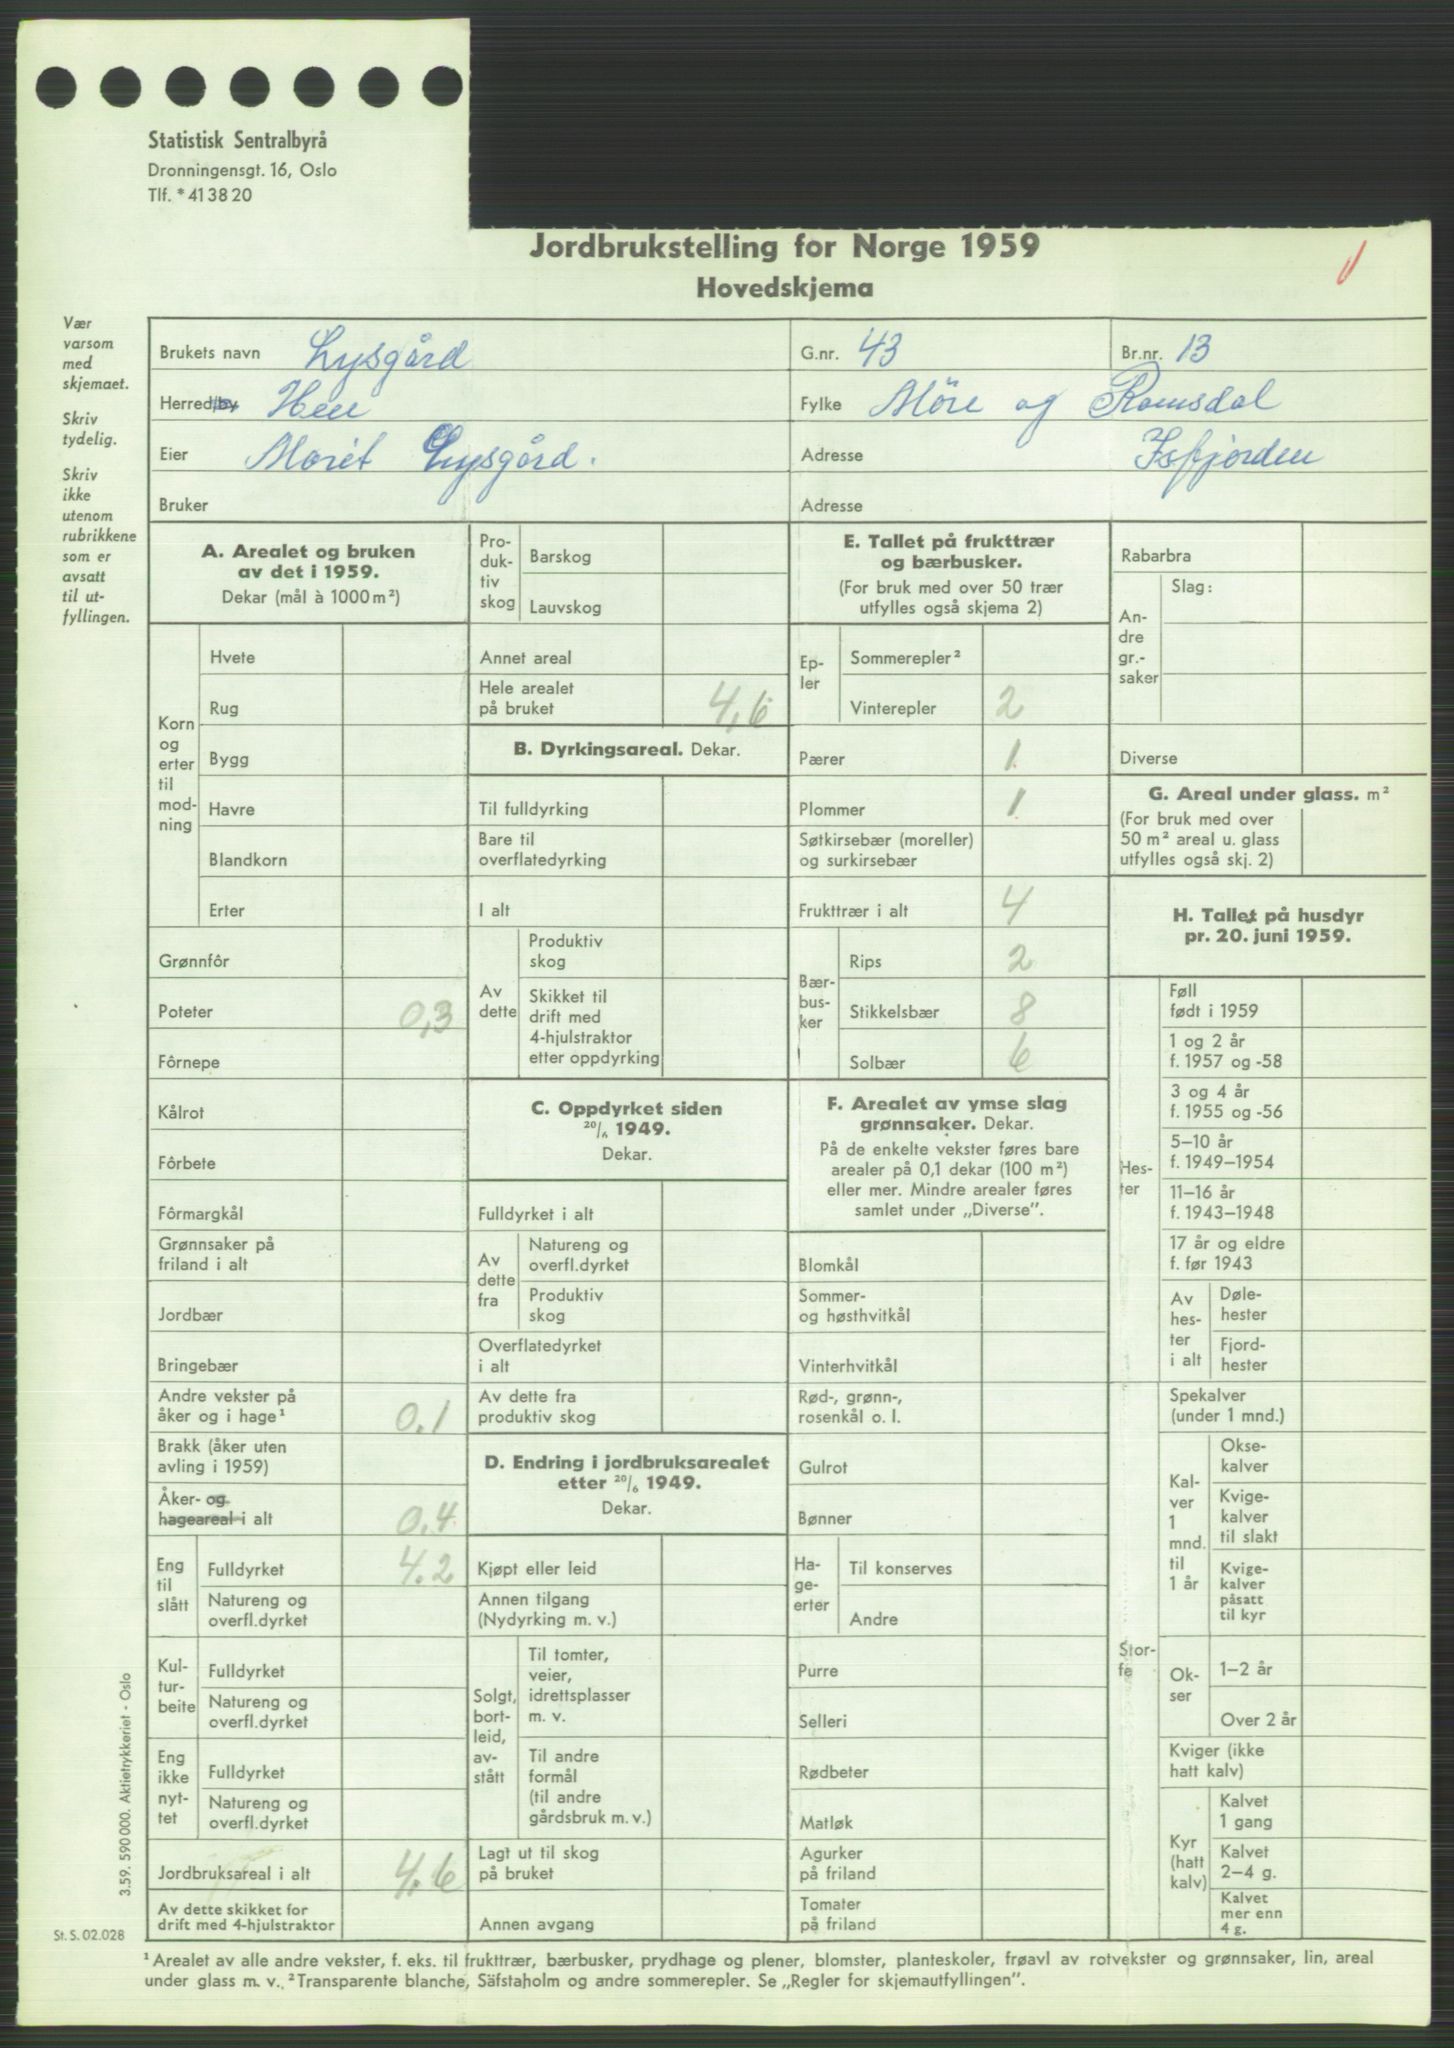 Statistisk Sentralbyrå
Dronningensgt. 16, Oslo
Tlf. * 41 38 20
Jordbrukstelling for Norge 1959
Hovedskjema
Vær
varsom
med
skjemaet.
Skriv
tydelig.
Skriv
ikke
utenom
rubrikkene
som er
avsatt
til ut-
fyllingen.
Brukets navn Lysgård G.nr. 43 Br.nr. 13
Herred/by Hen Fylke Møre og Romsdal
Eier Marit Lysgård. Adresse Isfjorden
Bruker Adresse
A. Arealet og bruken
av det i 1959.
Dekar (mål à 1000 m²)
Korn
og
erter
til
mod-
ning
Hvete
Rug
Bygg
Havre
Blandkorn
Erter
Grønnfôr
Poteter 0,3
Fôrnepe
Kålrot
Fôrbete
Fôrmargkål
Grønnsaker på
friland i alt
Jordbær
Bringebær
Andre vekster på
åker og i hage¹ 0.1
Brakk (åker uten
avling i 1959)
Åker- og
hageareal i alt 0,4
Eng
til
slått
Fulldyrket 4.2
Natureng og
overfl.dyrket
Kul-
tur-
beite
Fulldyrket
Natureng og
overfl.dyrket
Eng
ikke
nyt-
tet
Fulldyrket
Natureng og
overfl.dyrket
Jordbruksareal i alt 4.6
Av dette skikket for
drift med 4-hjulstraktor
Pro-
duk-
tiv
skog
Barskog
Lauvskog
Annet areal
Hele arealet
på bruket 4,6
B. Dyrkingsareal. Dekar.
Til fulldyrking
Bare til
overflatedyrking
I alt
Av
dette
Produktiv
skog
Skikket til
drift med
4-hjulstraktor
etter oppdyrking
C. Oppdyrket siden
20/6 1949.
Dekar.
Fulldyrket i alt
Av
dette
fra
Natureng og
overfl.dyrket
Produktiv
skog
Overflatedyrket
i alt
Av dette fra
produktiv skog
D. Endring i jordbruksarealet
etter 20/6 1949.
Dekar.
Kjøpt eller leid
Annen tilgang
(Nydyrking m. v.)
Solgt,
bort-
leid,
av-
stått
Til tomter,
veier,
idrettsplasser
m. v.
Til andre
formål
(til andre
gårdsbruk m. v.)
Lagt ut til skog
på bruket
Annen avgang
E. Tallet på frukttrær
og bærbusker.
(For bruk med over 50 trær
utfylles også skjema 2)
Ep-
ler
Sommerepler²
Vinterepler 2
Pærer 1
Plommer 1
Søtkirsebær (moreller)
og surkirsebær
Frukttrær i alt 4
Bær-
bus-
ker
Rips 2
Stikkelsbær 8
Solbær 6
F. Arealet av ymse slag
grønnsaker. Dekar.
På de enkelte vekster føres bare
arealer på 0,1 dekar (100 m²)
eller mer. Mindre arealer føres
samlet under „Diverse”.
Blomkål
Sommer-
og høsthvitkål
Vinterhvitkål
Rød-, grønn-,
rosenkål o. l.
Gulrot
Bønner
Ha-
ge-
erter
Til konserves
Andre
Purre
Selleri
Rødbeter
Matløk
Agurker
på friland
Tomater
på friland
Rabarbra
An-
dre
gr.-
saker
Slag:
Diverse
G. Areal under glass. m²
(For bruk med over
50 m² areal u. glass
utfylles også skj. 2)
H. Tallet på husdyr
pr. 20. juni 1959.
Hes-
ter
Føll
født i 1959
1 og 2 år
f. 1957 og -58
3 og 4 år
f. 1955 og -56
5–10 år
f. 1949–1954
11–16 år
f. 1943–1948
17 år og eldre
f. før 1943
Av
hes-
ter
i alt
Døle-
hester
Fjord-
hester
Stor-
fe
Spekalver
(under 1 mnd.)
Kal-
ver
1
mnd.
til
1 år
Okse-
kalver
Kvige-
kalver
til slakt
Kvige-
kalver
påsatt
til kyr
Ok-
ser
1–2 år
Over 2 år
Kviger (ikke
hatt kalv)
Kyr
(hatt
kalv)
Kalvet
1 gang
Kalvet
2–4 g.
Kalvet
mer enn
4 g.
3.59. 590 000. Aktietrykkeriet - Oslo
St. S. 02.028
¹ Arealet av alle andre vekster, f. eks. til frukttrær, bærbusker, prydhage og plener, blomster, planteskoler, frøavl av rotvekster og grønnsaker, lin, areal
under glass m. v. ² Transparente blanche, Säfstaholm og andre sommerepler. Se „Regler for skjemautfyllingen”.